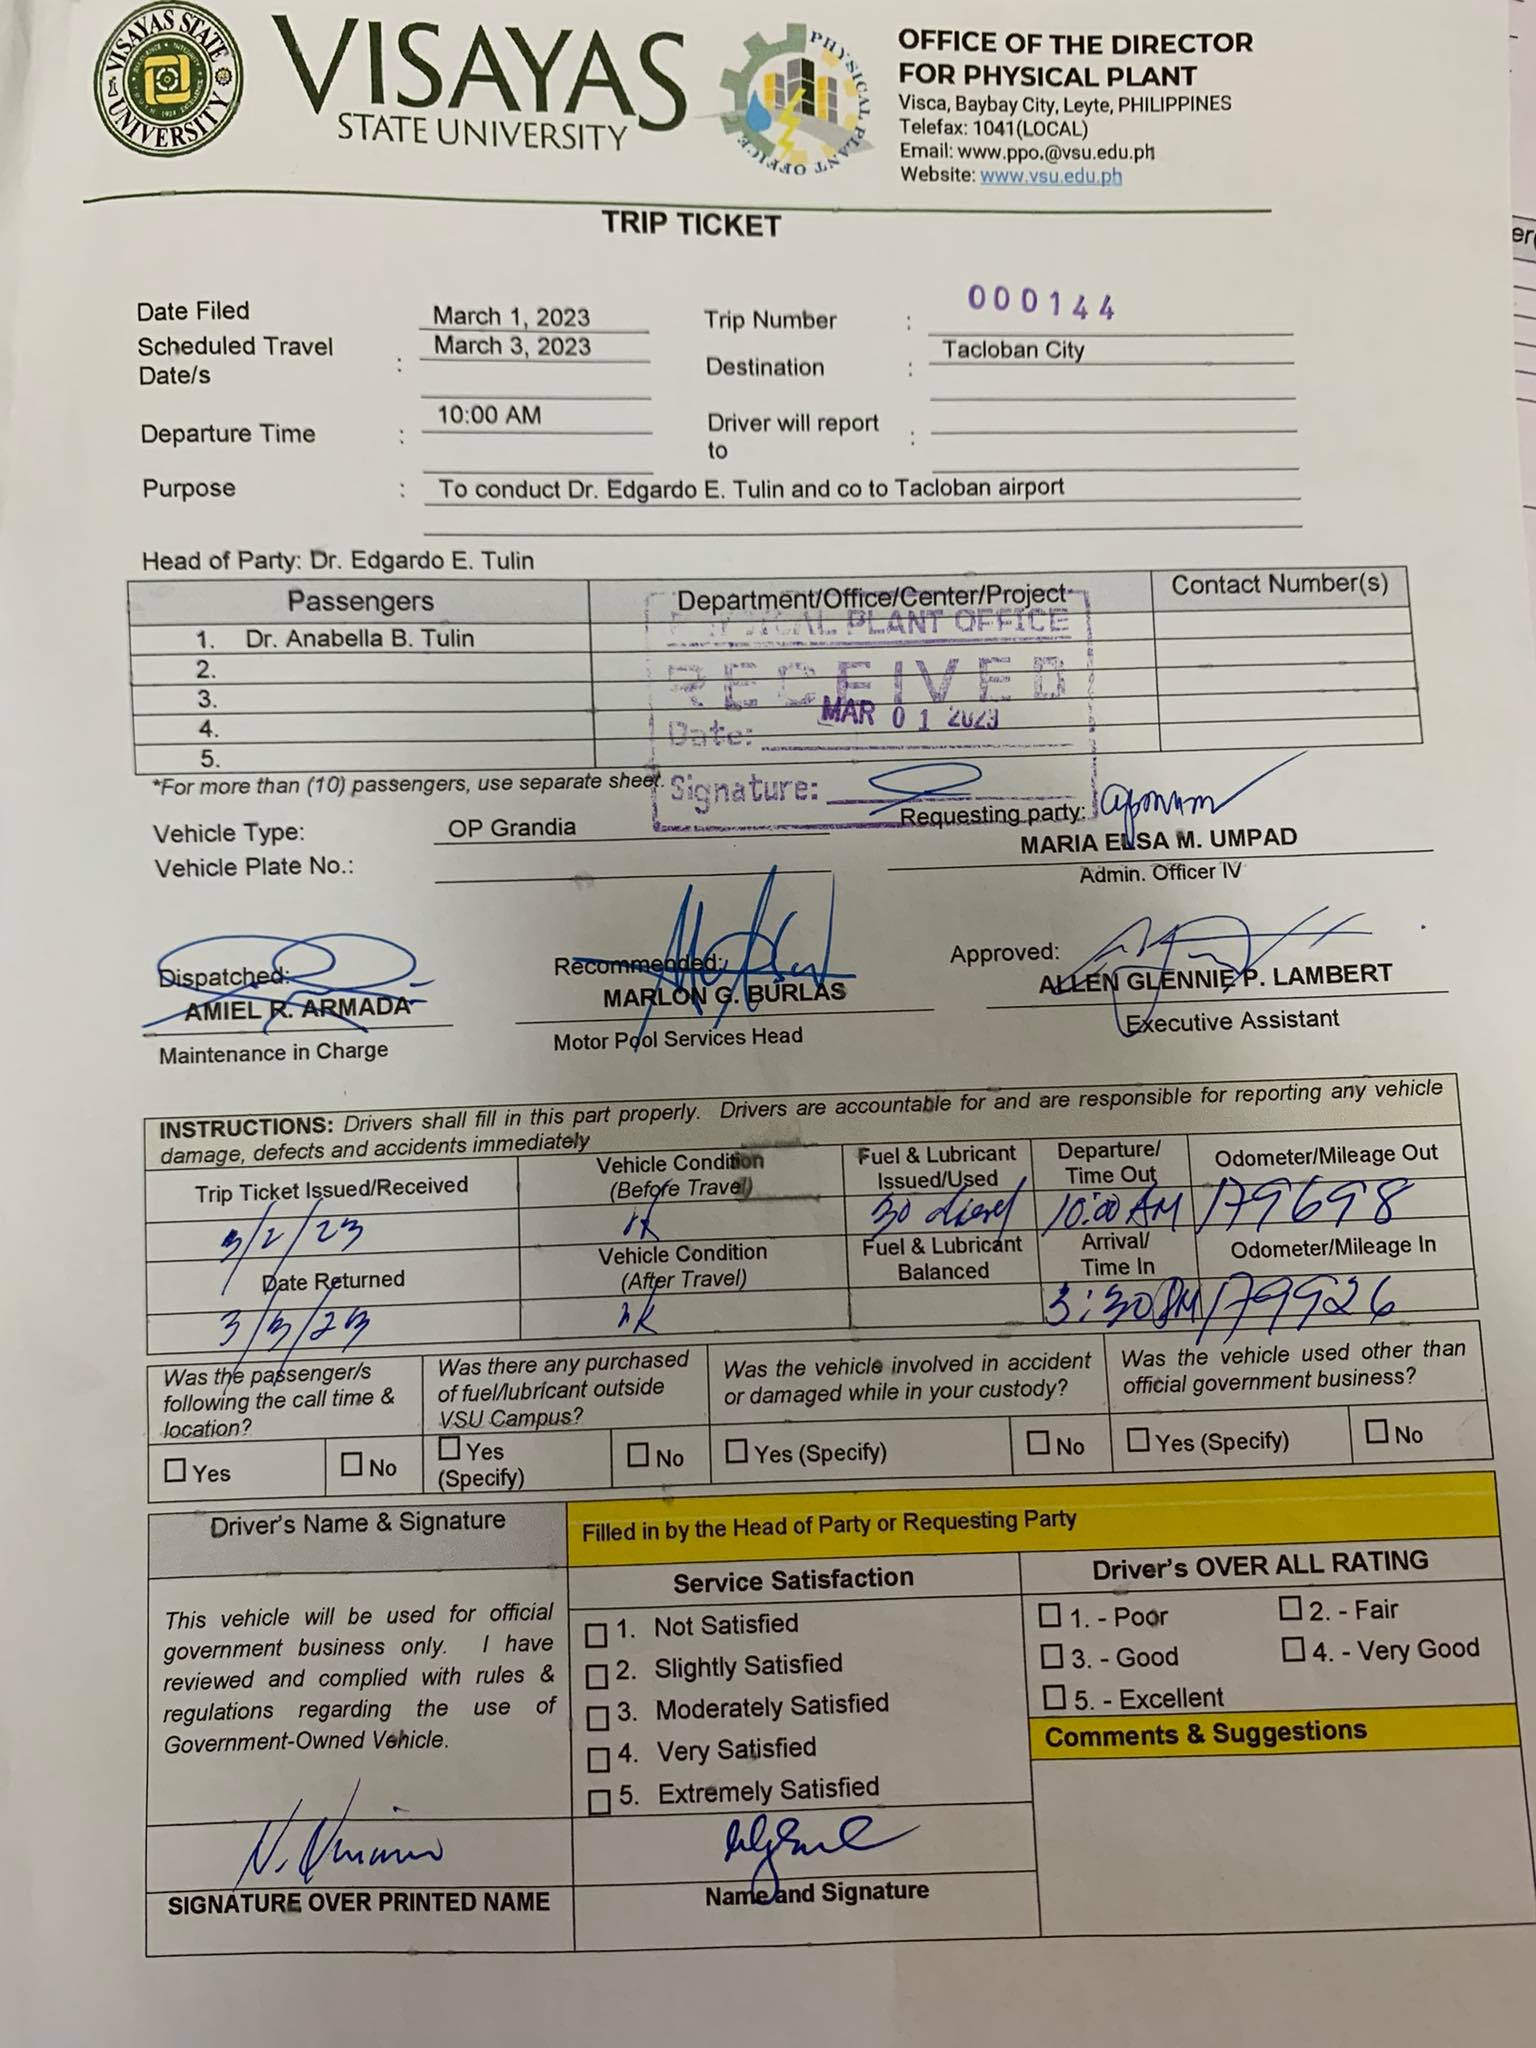 VISAYAS STATE UNIVERSITY
VISAYAS
STATE UNIVERSITY
PHYSICAL PLANT OFFICE
OFFICE OF THE DIRECTOR
FOR PHYSICAL PLANT
Visca, Baybay City, Leyte, PHILIPPINES
Telefax: 1041(LOCAL)
Email: www.ppo.@vsu.edu.ph
Website: www.vsu.edu.ph
TRIP TICKET
Date Filed March 1, 2023 Trip Number : 000144
Scheduled Travel Date/s : March 3, 2023 Destination : Tacloban City
Departure Time : 10:00 AM Driver will report to :
Purpose : To conduct Dr. Edgardo E. Tulin and co to Tacloban airport
Head of Party: Dr. Edgardo E. Tulin
Passengers Department/Office/Center/Project Contact Number(s)
1. Dr. Anabella B. Tulin
2.
3.
4.
5.
PHYSICAL PLANT OFFICE
RECEIVED
Date: MAR 01 2023
Signature:
*For more than (10) passengers, use separate sheet.
Vehicle Type: OP Grandia Requesting party:
MARIA ELSA M. UMPAD
Vehicle Plate No.: Admin. Officer IV
Dispatched: Recommended: Approved:
AMIEL R. ARMADA MARLON G. BURLAS ALLEN GLENNIE P. LAMBERT
Maintenance in Charge Motor Pool Services Head Executive Assistant
INSTRUCTIONS: Drivers shall fill in this part properly. Drivers are accountable for and are responsible for reporting any vehicle
damage, defects and accidents immediately
Trip Ticket Issued/Received Vehicle Condition (Before Travel) Fuel & Lubricant Issued/Used Departure/ Time Out Odometer/Mileage Out
3/2/23 30 diesel 10:00 AM 179698
Date Returned Vehicle Condition (After Travel) Fuel & Lubricant Balanced Arrival/ Time In Odometer/Mileage In
3/3/23 3:30 PM 179926
Was the passenger/s following the call time & location? Was there any purchased of fuel/lubricant outside VSU Campus? Was the vehicle involved in accident or damaged while in your custody? Was the vehicle used other than official government business?
Yes No Yes (Specify) No Yes (Specify) No Yes (Specify) No
Driver's Name & Signature Filled in by the Head of Party or Requesting Party
This vehicle will be used for official
government business only. I have
reviewed and complied with rules &
regulations regarding the use of
Government-Owned Vehicle.
SIGNATURE OVER PRINTED NAME
Service Satisfaction
1. Not Satisfied
2. Slightly Satisfied
3. Moderately Satisfied
4. Very Satisfied
5. Extremely Satisfied
Name and Signature
Driver's OVER ALL RATING
1. - Poor 2. - Fair
3. - Good 4. - Very Good
5. - Excellent
Comments & Suggestions